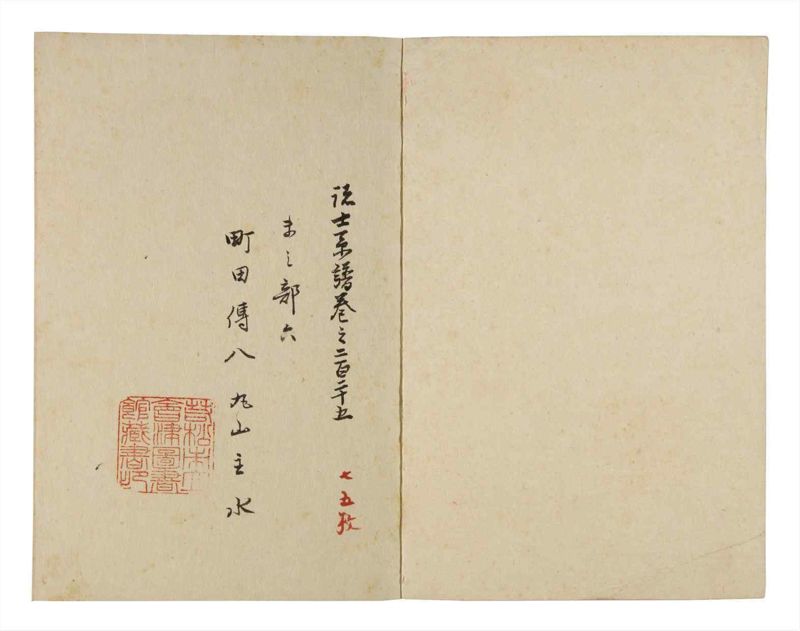 諸士系譜巻之二百二十五
七五枚
ま之部六
町田傳八 丸山主水
若松市立
會津圖書
館藏書印